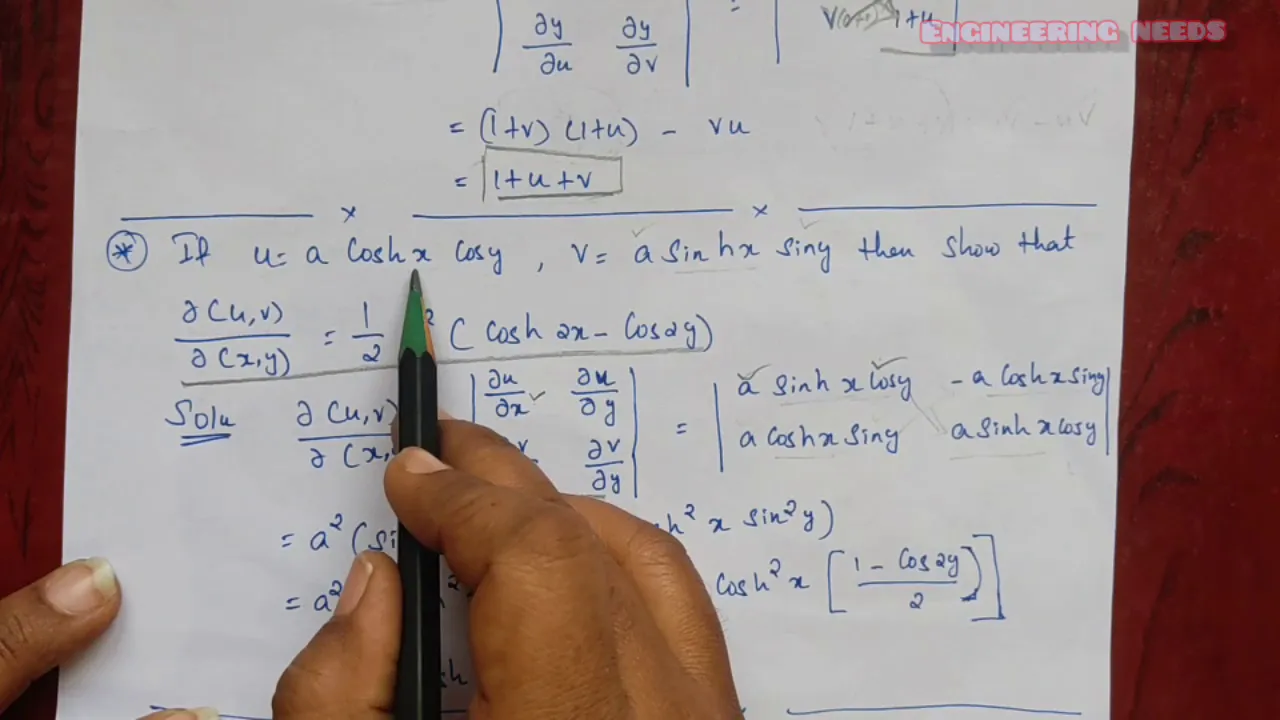 V 1+u
ENGINEERING NEEDS
| ∂y/∂u ∂y/∂v |
= (1+v) (1+u) - vu
= 1+u+v
× ×
* If u= a Coshx cosy , v= a sinhx siny then show that
∂(u,v)/∂(x,y) = 1/2 2 ( Cosh 2x - Cos2y)
Solu ∂(u,v) ∂(x, | ∂u/∂x ∂u/∂y ∂v/∂y | = | a sinh x Cosy - a Coshx siny a coshx siny a sinh x cosy |
= a² ( h² x sin²y)
= a² Cosh² x [ 1 - Cos2y / 2 ) ]